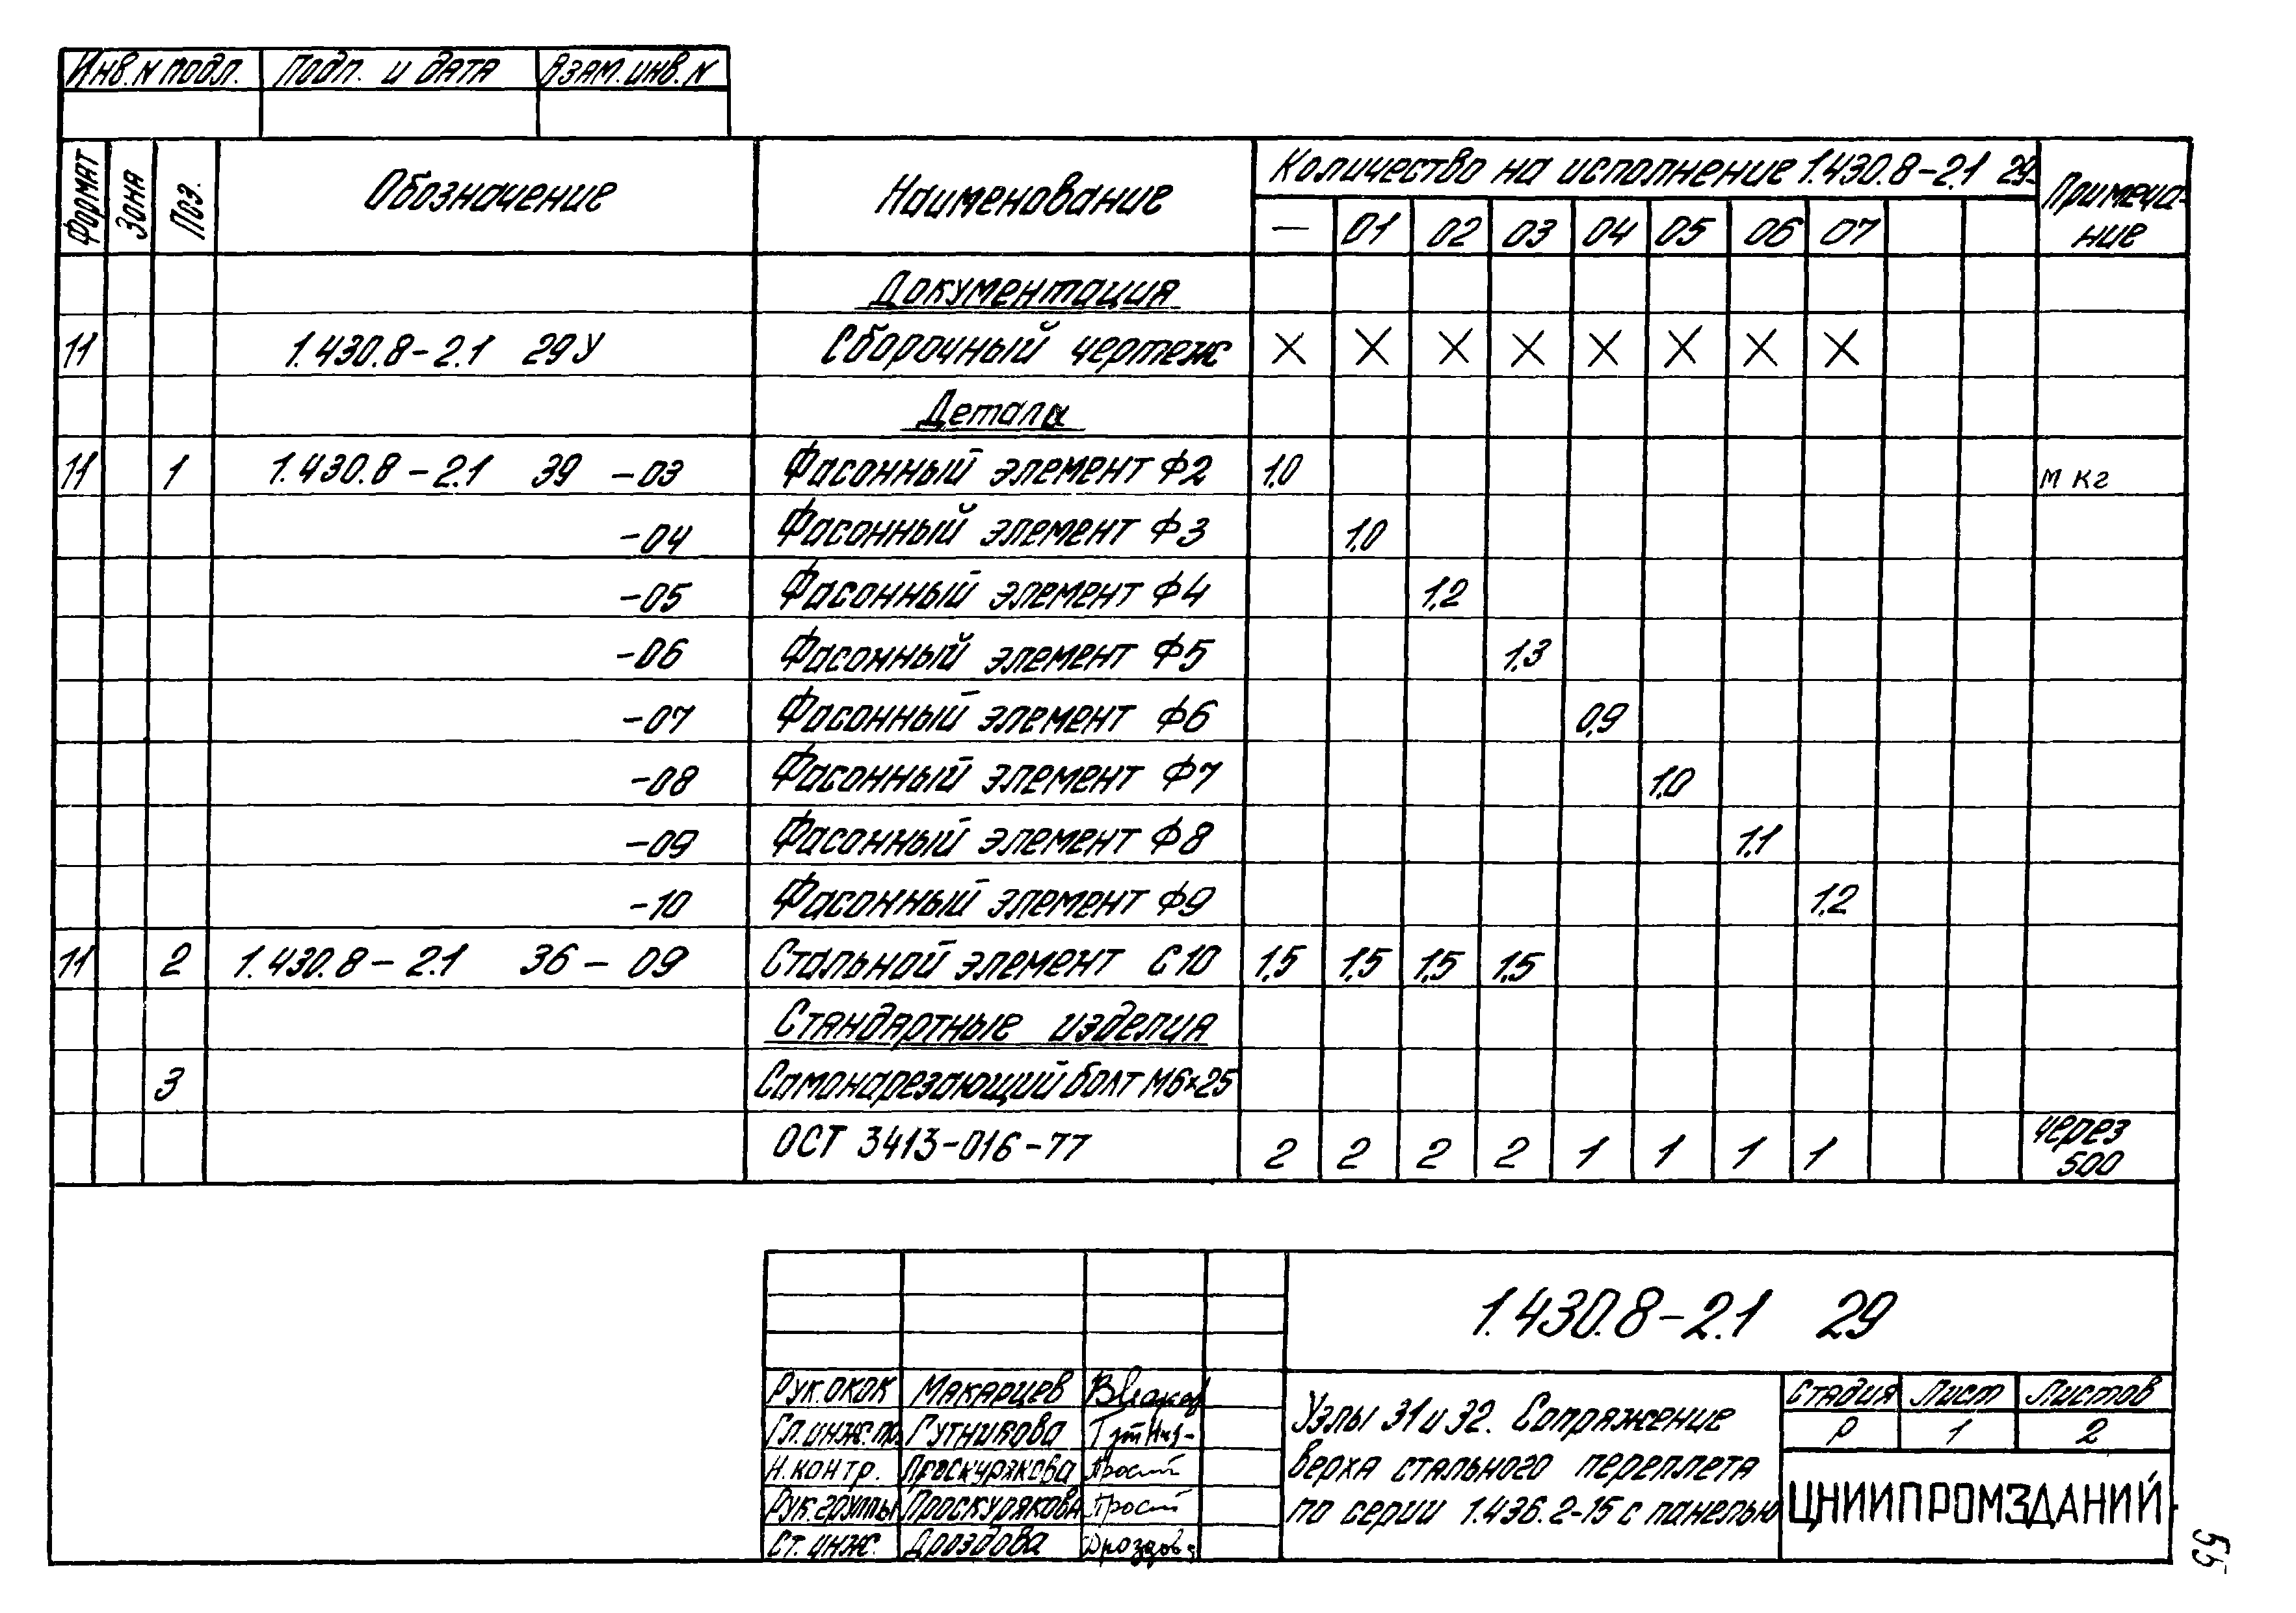 Инв. N подл. Подп. и дата Взам. инв. N
Формат Зона Поз. Обозначение Наименование Количество на исполнение 1.430.8-2.1 29- Примеча-
ние
— 01 02 03 04 05 06 07
Документация
11 1.430.8-2.1 29У Сборочный чертеж × × × × × × × ×
Детали
11 1 1.430.8-2.1 39 -03 Фасонный элемент Ф2 1,0 м кг
-04 Фасонный элемент Ф3 1,0
-05 Фасонный элемент Ф4 1,2
-06 Фасонный элемент Ф5 1,3
-07 Фасонный элемент Ф6 0,9
-08 Фасонный элемент Ф7 1,0
-09 Фасонный элемент Ф8 1,1
-10 Фасонный элемент Ф9 1,2
11 2 1.430.8-2.1 36-09 Стальной элемент С10 1,5 1,5 1,5 1,5
Стандартные изделия
3 Самонарезающий болт М6×25
ОСТ 3413-016-77 2 2 2 2 1 1 1 1 через
500
1.430.8-2.1 29
Рук. ОКОК Макарцев
Гл. инж. пр. Гутникова
Н. контр. Проскурякова
Рук. группы Проскурякова
Ст. инж. Дроздова Дроздова
Узлы 31 и 32. Сопряжение
верха стального переплета
по серии 1.436.2-15 с панелью
Стадия Лист Листов
Р 1 2
ЦНИИПРОМЗДАНИЙ
55